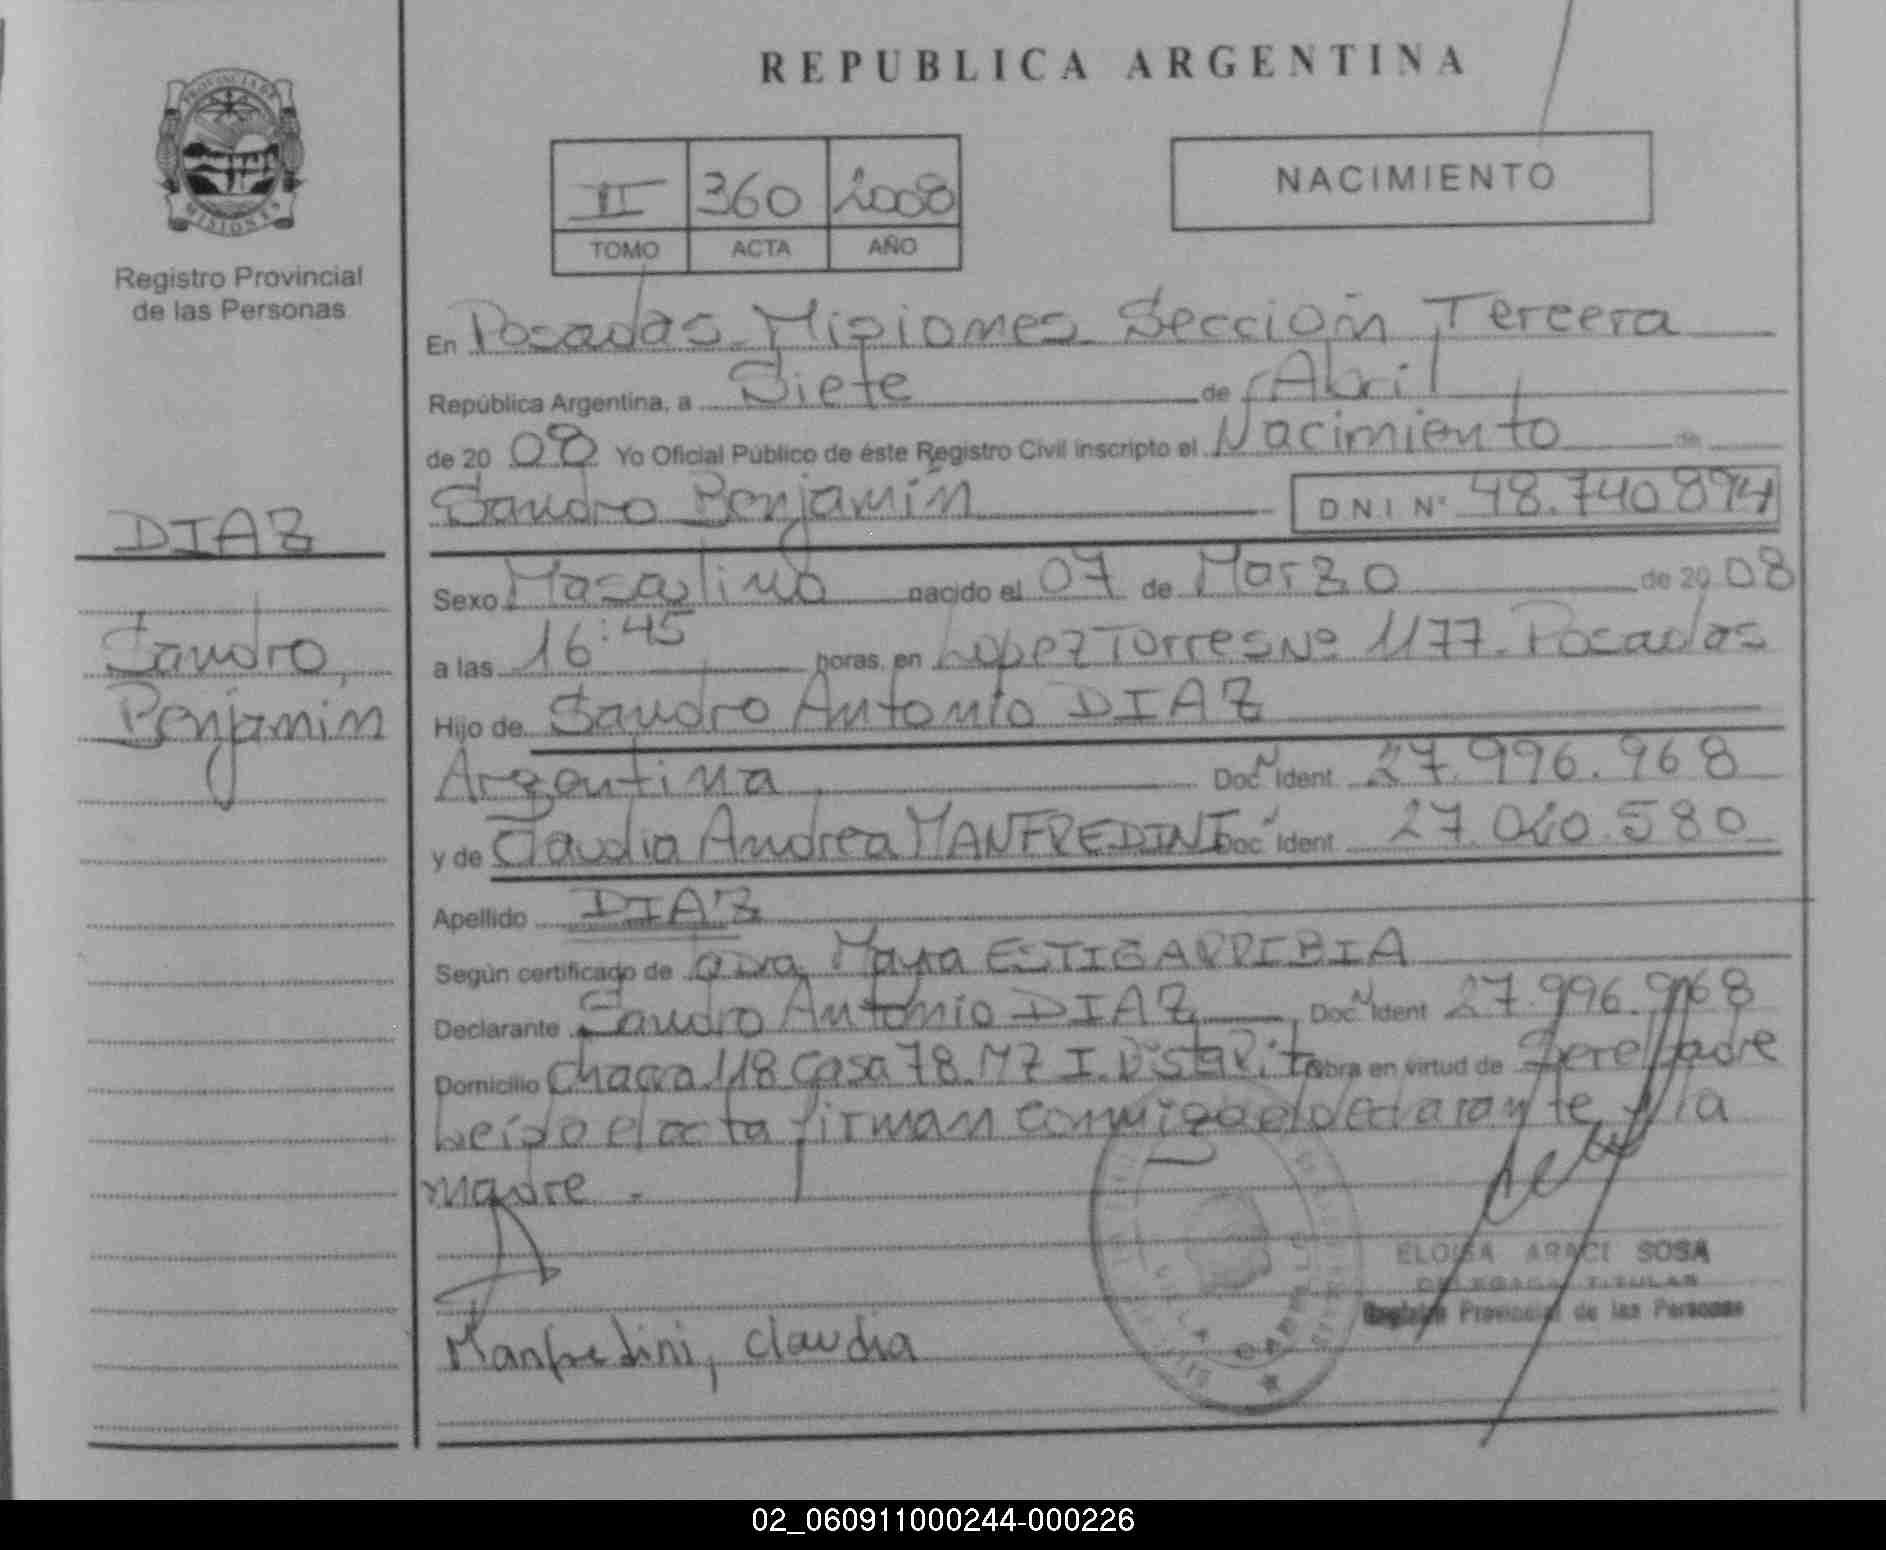 REPUBLICA ARGENTINA
PROVINCIA DE
MISIONES
Registro Provincial
de las Personas
II 360 2008
TOMO ACTA AÑO
NACIMIENTO
En Posadas Misiones Sección Tercera
República Argentina, a Siete de Abril
de 2008 Yo Oficial Público de éste Registro Civil inscripto el Nacimiento de
Sandro Benjamín DNI Nº 48.740.894
DIAZ
Sandro,
Benjamin
Sexo Masculino nacido el 07 de Marzo de 2008
a las 16:45 horas, en Lopez Torres Nº 1177. Posadas
Hijo de Sandro Antonio DIAZ
Argentina Doc. Ident. 27.996.968
y de Claudia Andrea MANFREDINI Doc. Ident. 27.040.580
Apellido DIAZ
Según certificado de Dra Mayra ESTIGARRIBIA
Declarante Sandro Antonio DIAZ, Doc. Ident 27.996.968
Domicilio Chacra 118 Casa 78. MZ I. obra en virtud de Ser el Padre
Leído el acta firman conmigo el declarante y la
madre.
ELOISA ARACI SOSA
DELEGADA TITULAR
Registro Provincial de las Personas
Manfredini, Claudia
02_060911000244-000226